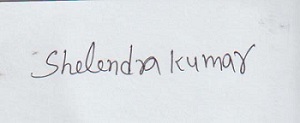 Shelendra Kumar